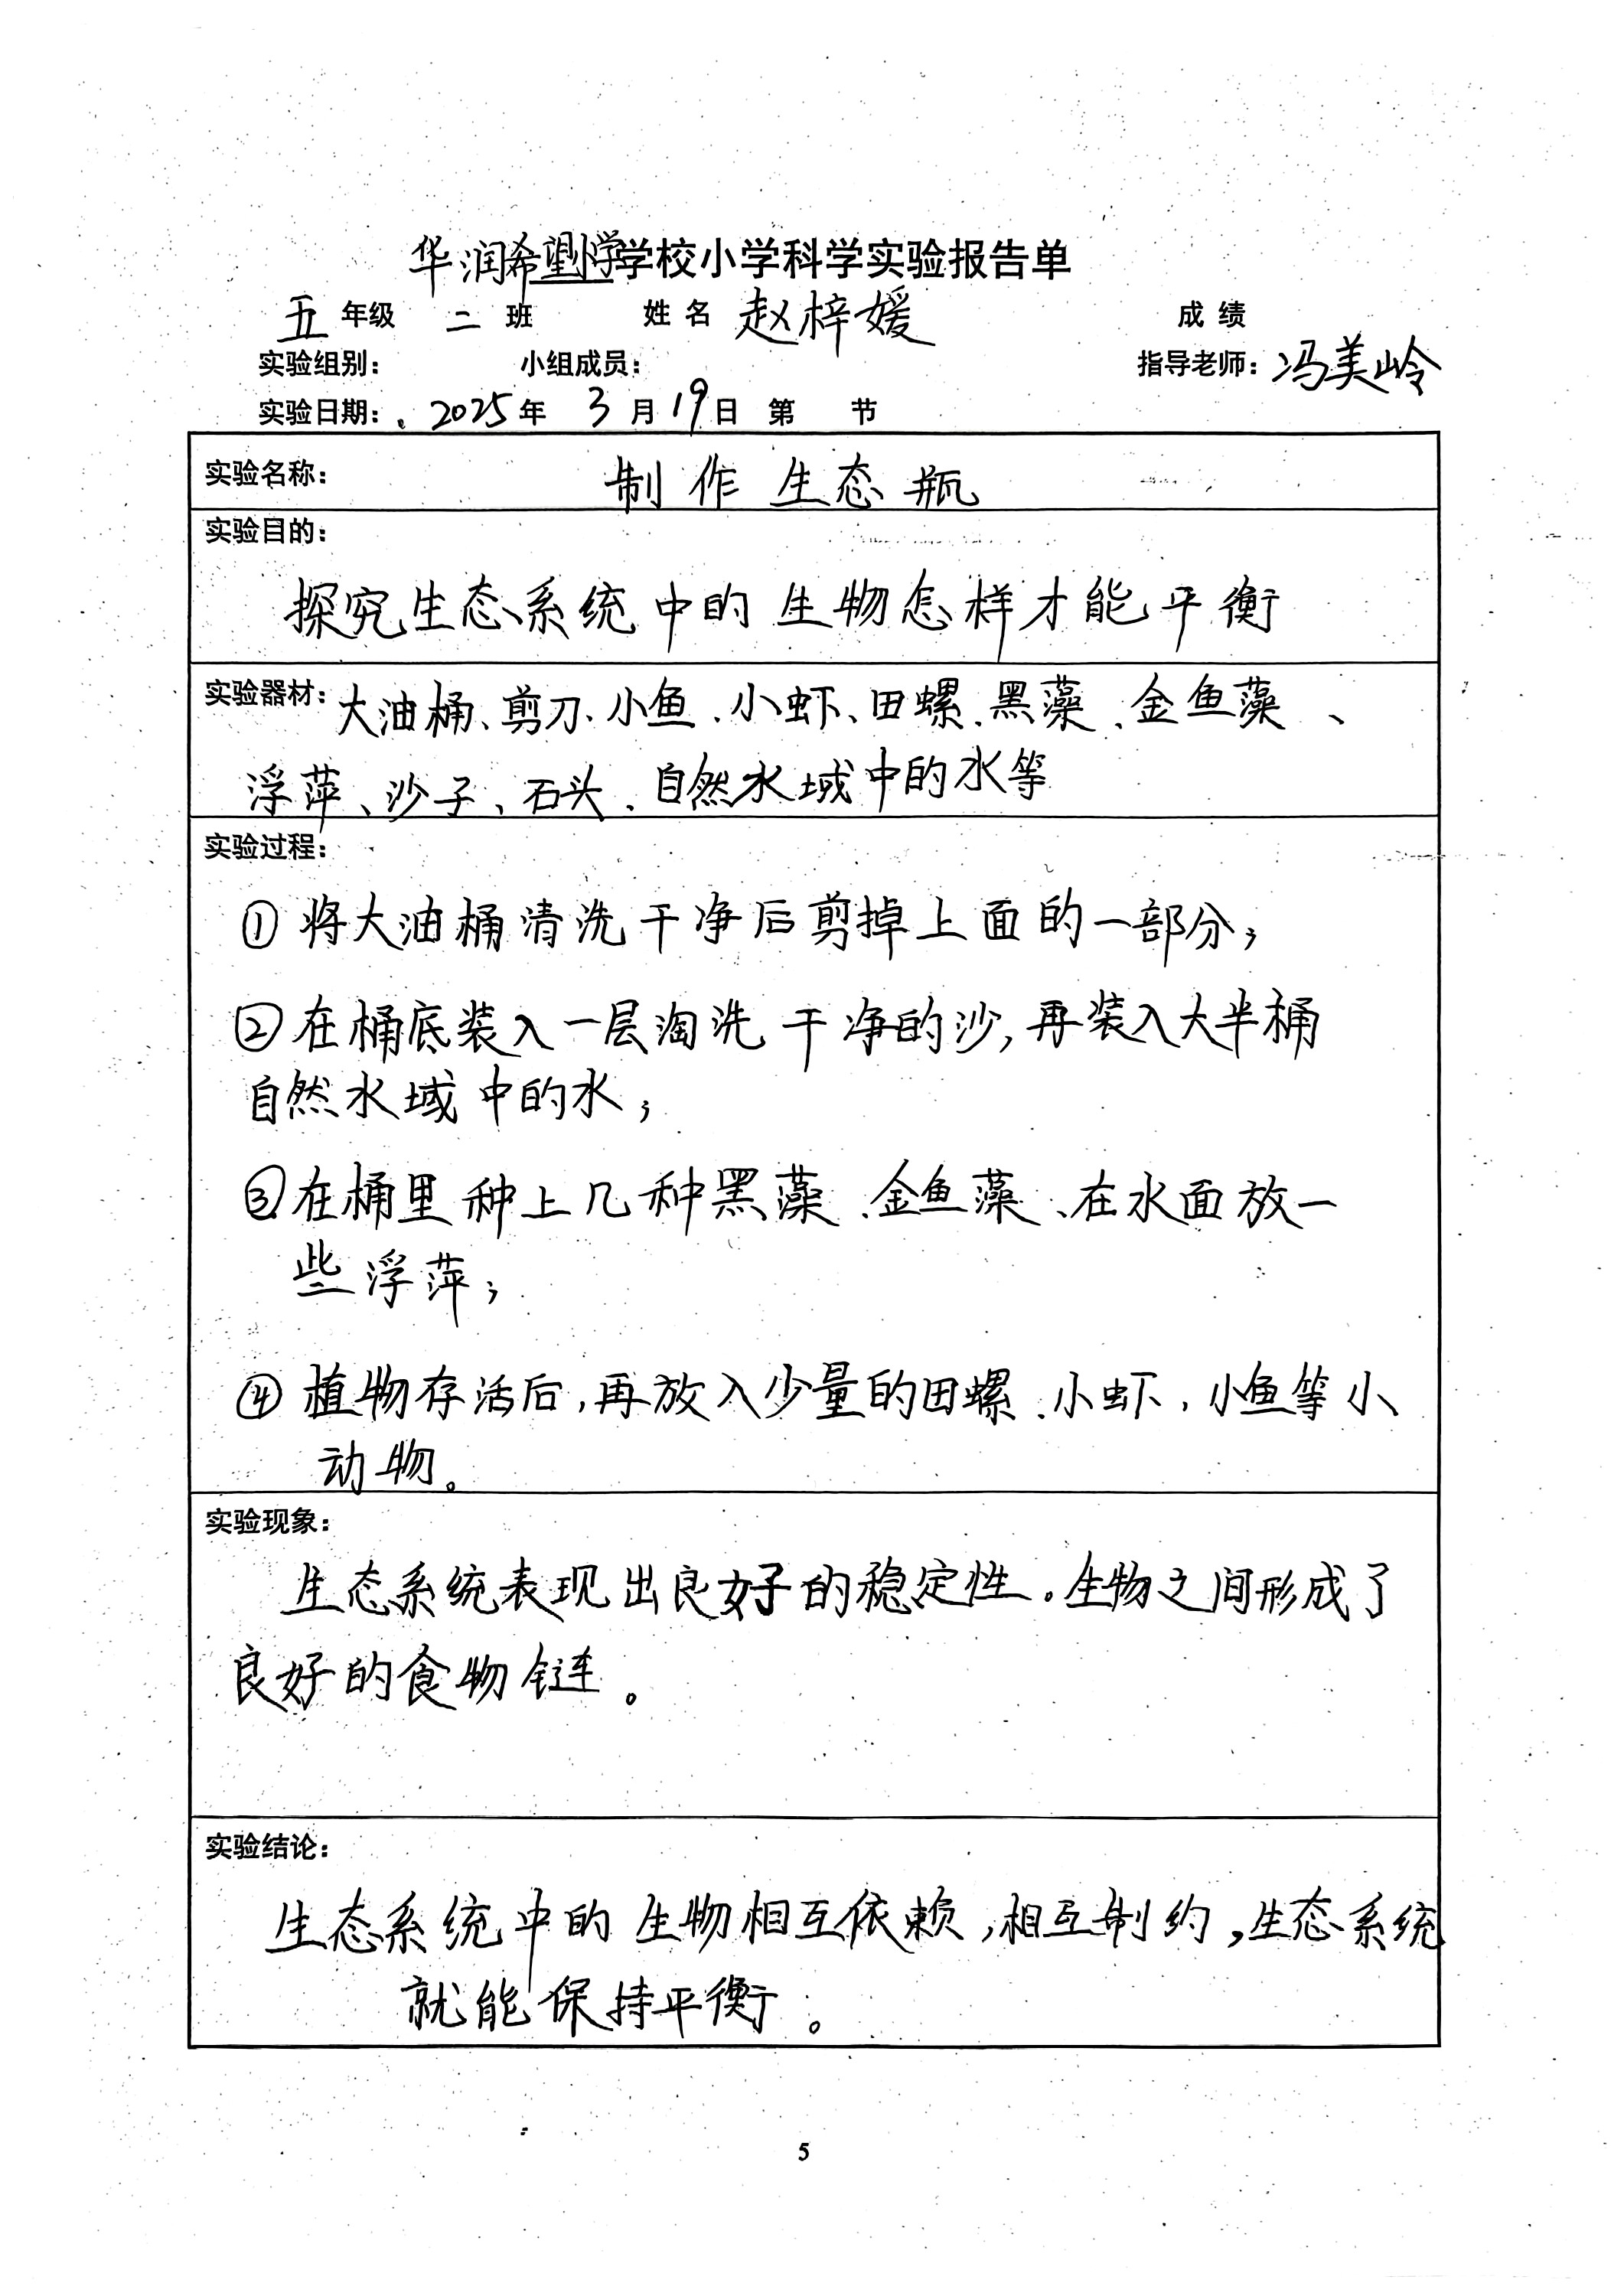 华润希望小学学校小学科学实验报告单
五 年级 二 班 姓 名 赵梓媛 成 绩
实验组别： 小组成员： 指导老师：冯美岭
实验日期：2025年 3月19日 第 节
实验名称： 制作生态瓶
实验目的：
探究生态系统中的生物怎样才能平衡
实验器材：大油桶、剪刀、小鱼、小虾、田螺、黑藻、金鱼藻、
浮萍、沙子、石头、自然水域中的水等
实验过程：
①将大油桶清洗干净后剪掉上面的一部分；
②在桶底装入一层淘洗干净的沙，再装入大半桶
自然水域中的水；
③在桶里种上几种黑藻、金鱼藻、在水面放一
些浮萍；
④植物存活后，再放入少量的田螺、小虾，小鱼等小
动物。
实验现象：
生态系统表现出良好的稳定性。生物之间形成了
良好的食物链。
实验结论：
生态系统中的生物相互依赖，相互制约，生态系统
就能保持平衡。
5